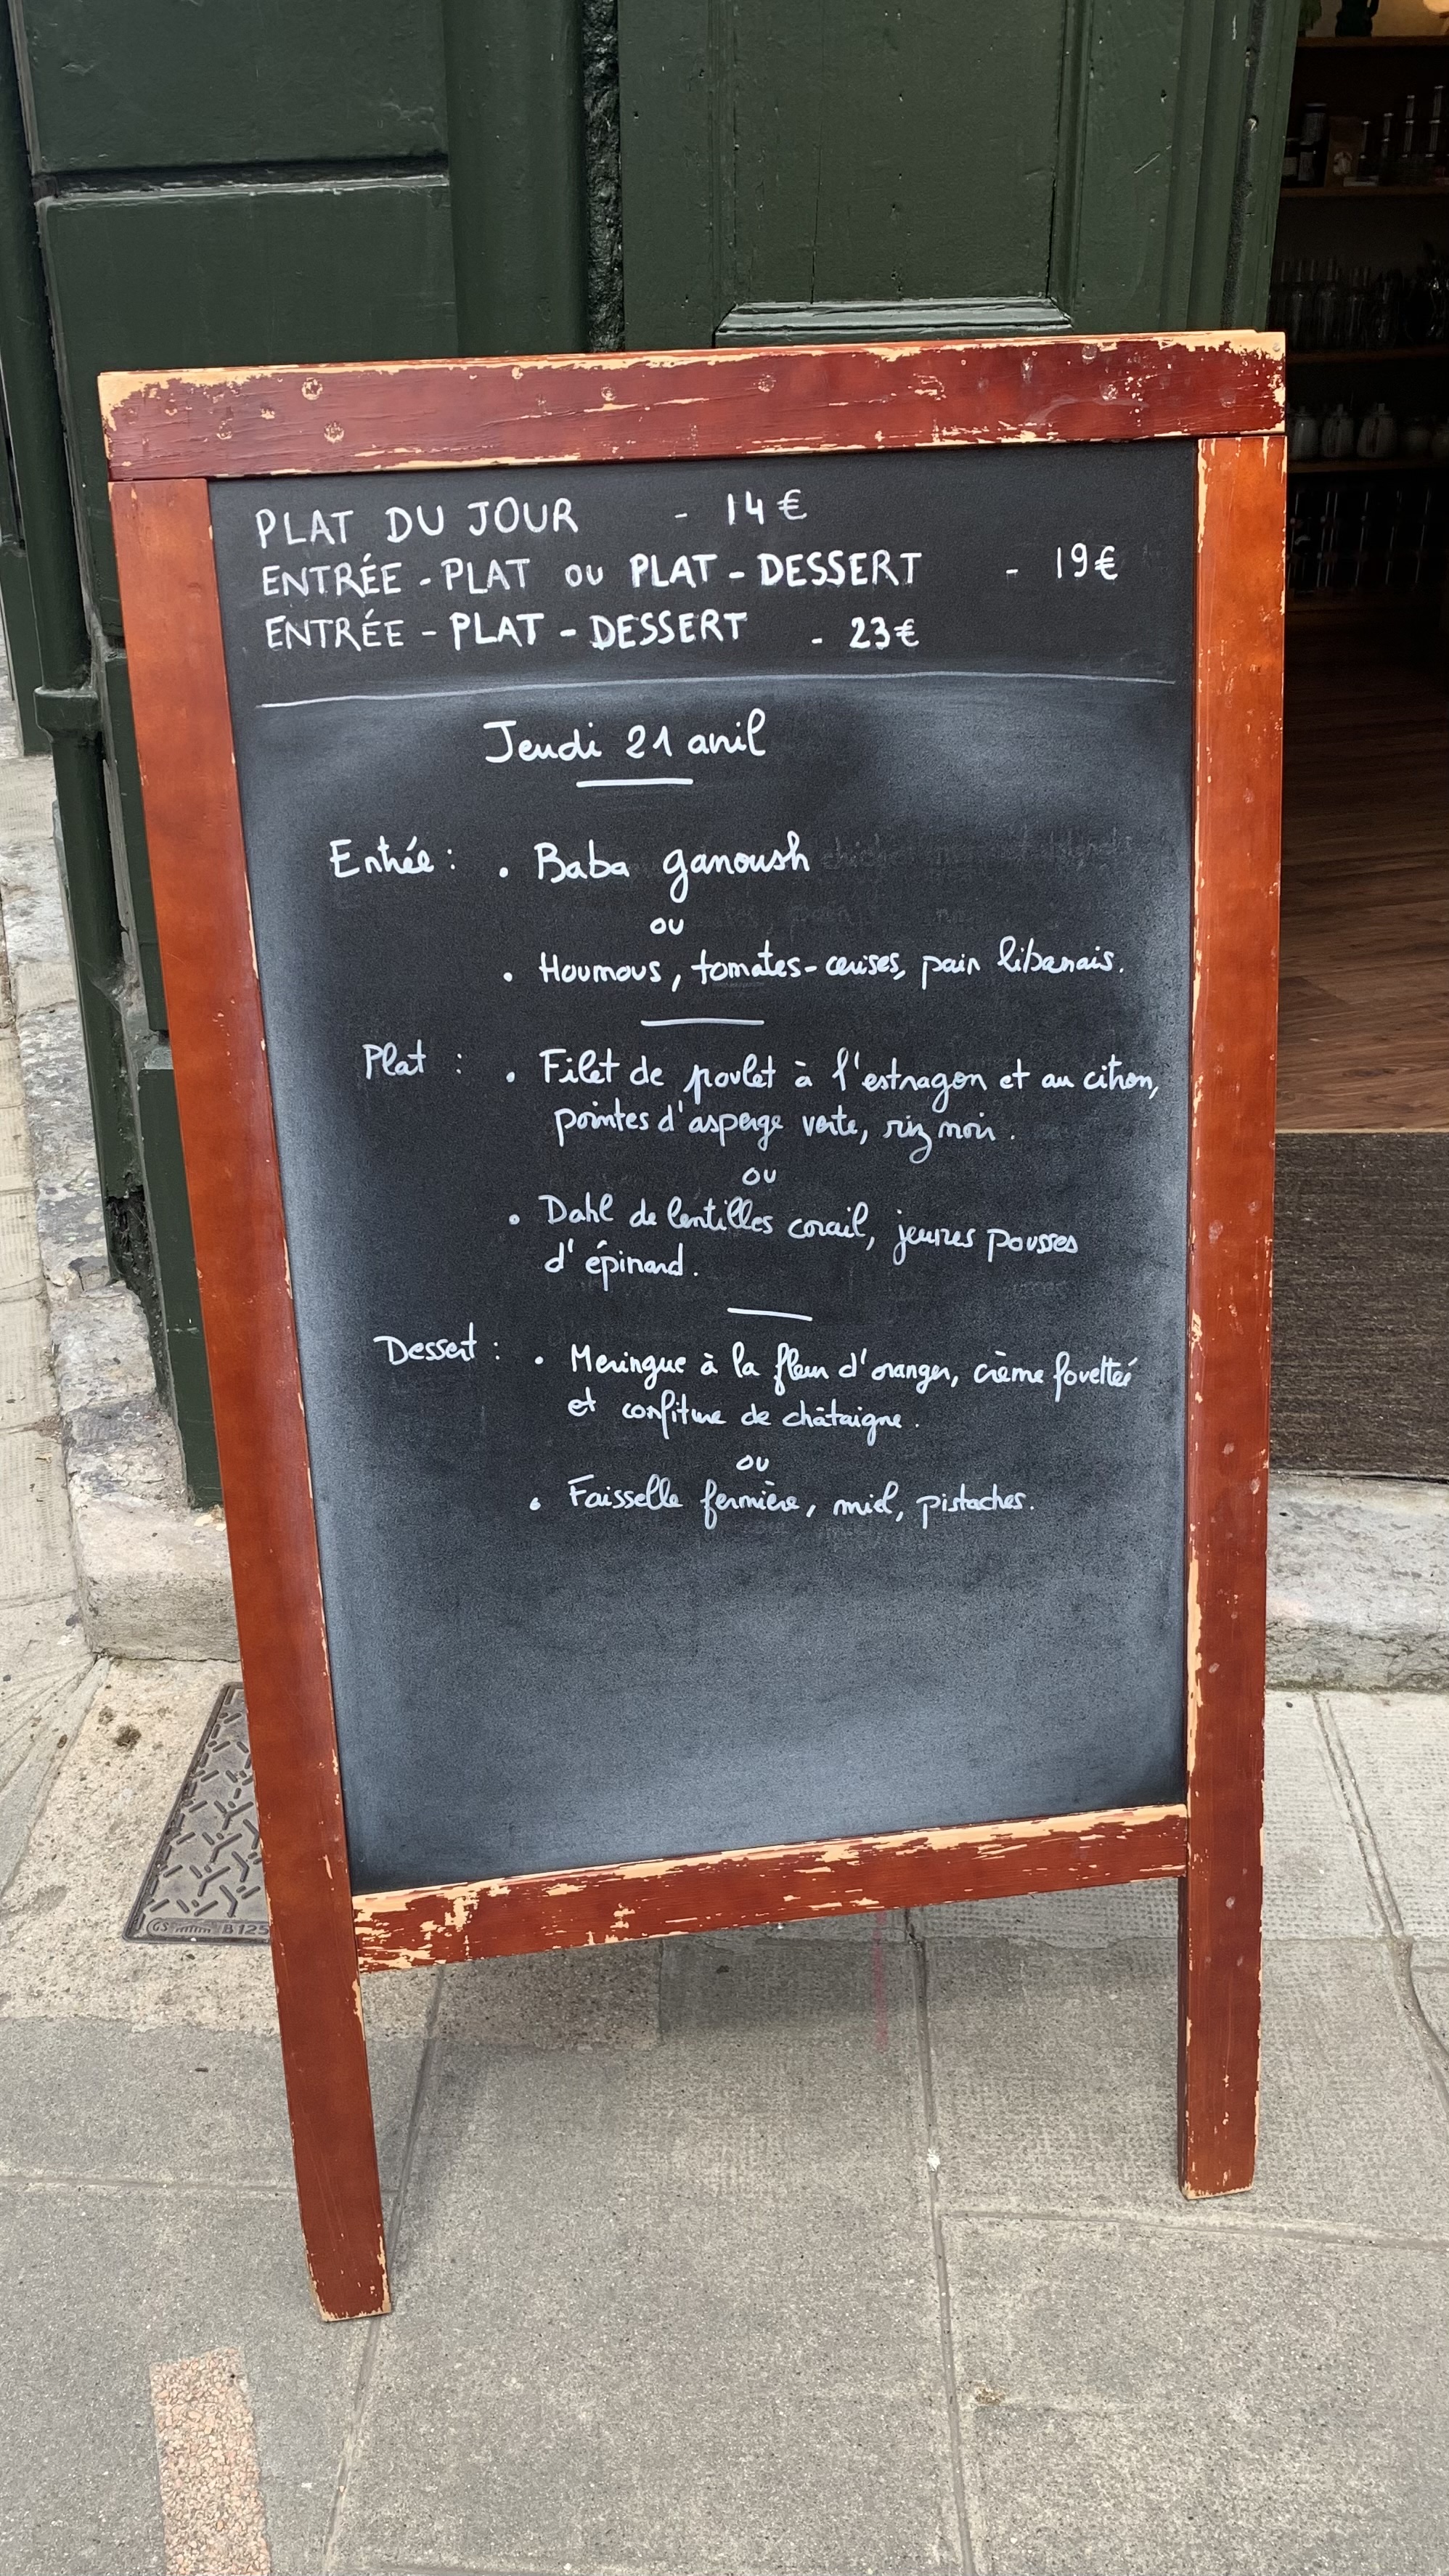 PLAT DU JOUR - 14€
ENTRÉE - PLAT OU PLAT - DESSERT - 19€
ENTRÉE - PLAT - DESSERT - 23€
Jeudi 21 avril
Entrée : • Baba ganoush
ou
• Houmous, tomates-cerises, pain libanais.
Plat : • Filet de poulet à l'estragon et au citron,
pointes d'asperge verte, riz noir.
ou
• Dahl de lentilles corail, jeunes pousses
d'épinard.
Dessert : • Meringue à la fleur d'oranger, crème fouettée
et confiture de châtaigne.
ou
• Faisselle fermière, miel, pistaches.
GS B 125